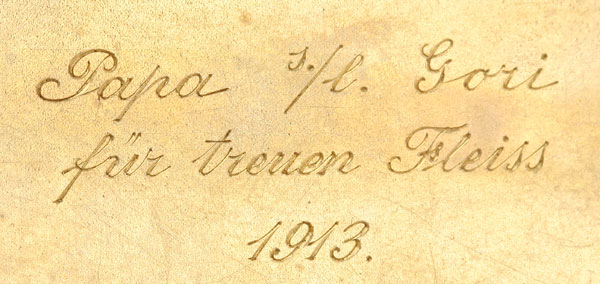 Papa s./l. Gori
für treuen Fleiss
1913.